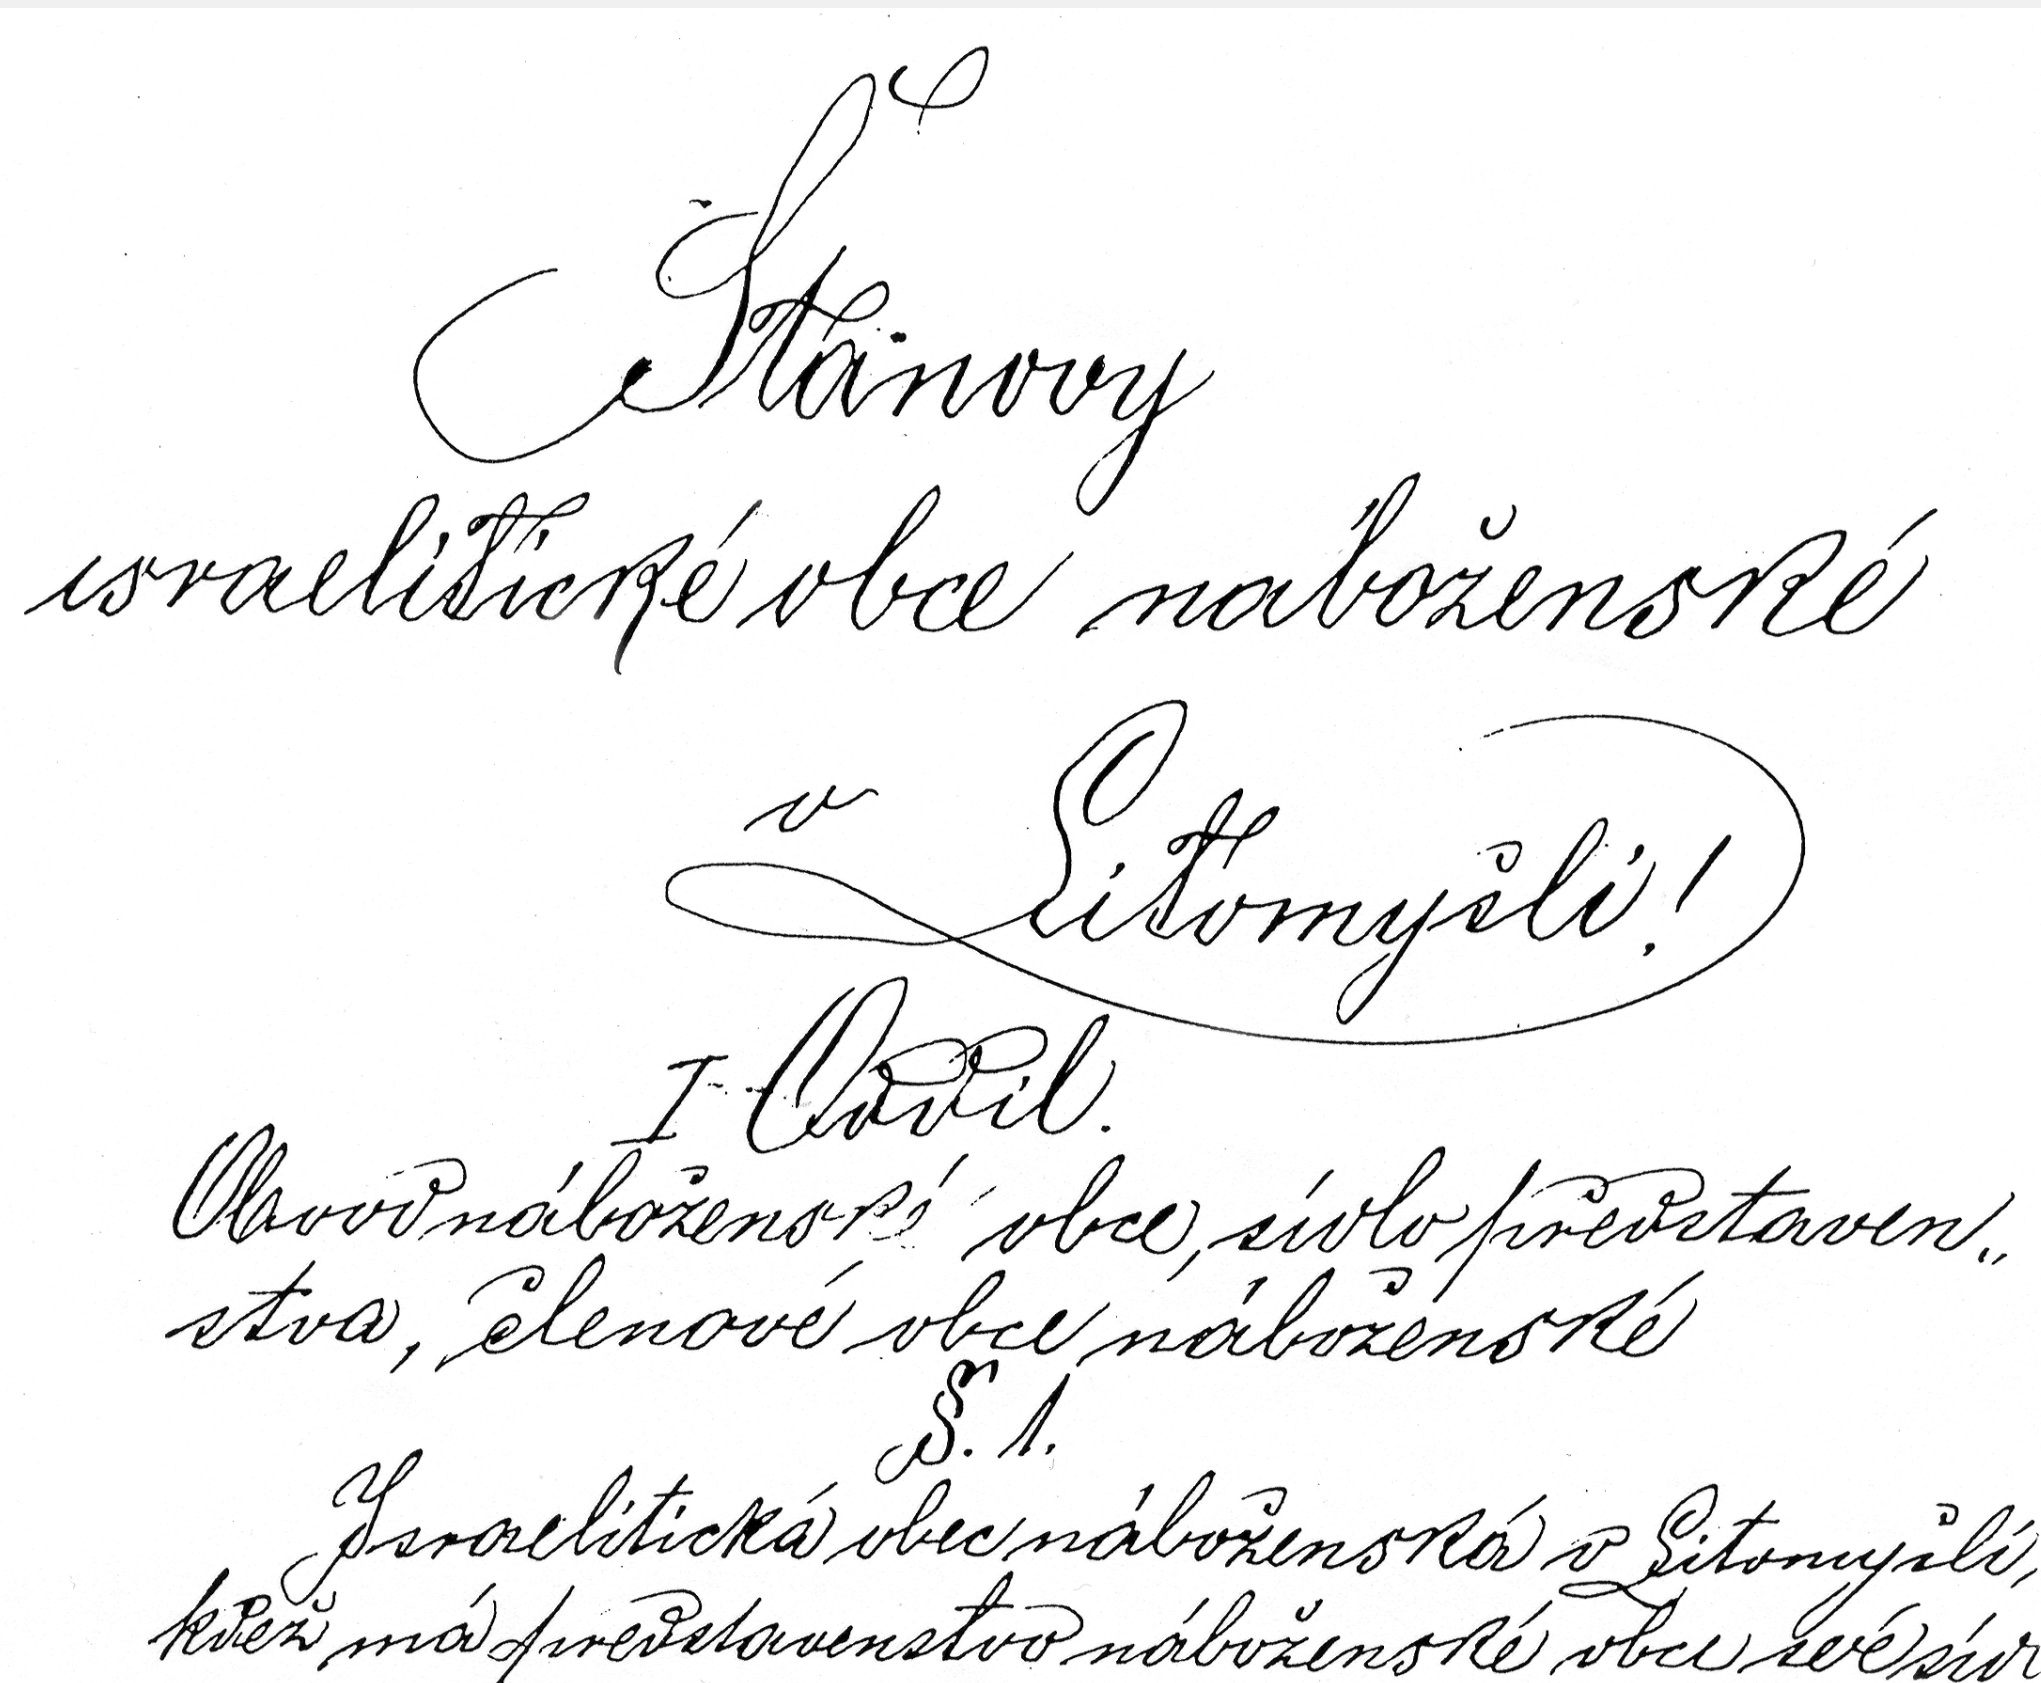 Stanovy
israelitické obce náboženské
v
Litomyšli!
I Oddíl.
Obvod náboženské obce, sídlo představen„
stva, členové obce náboženské
§. 1.
Israelitická obec náboženská v Litomyšli,
kdež má představenstvo náboženské obce své síd